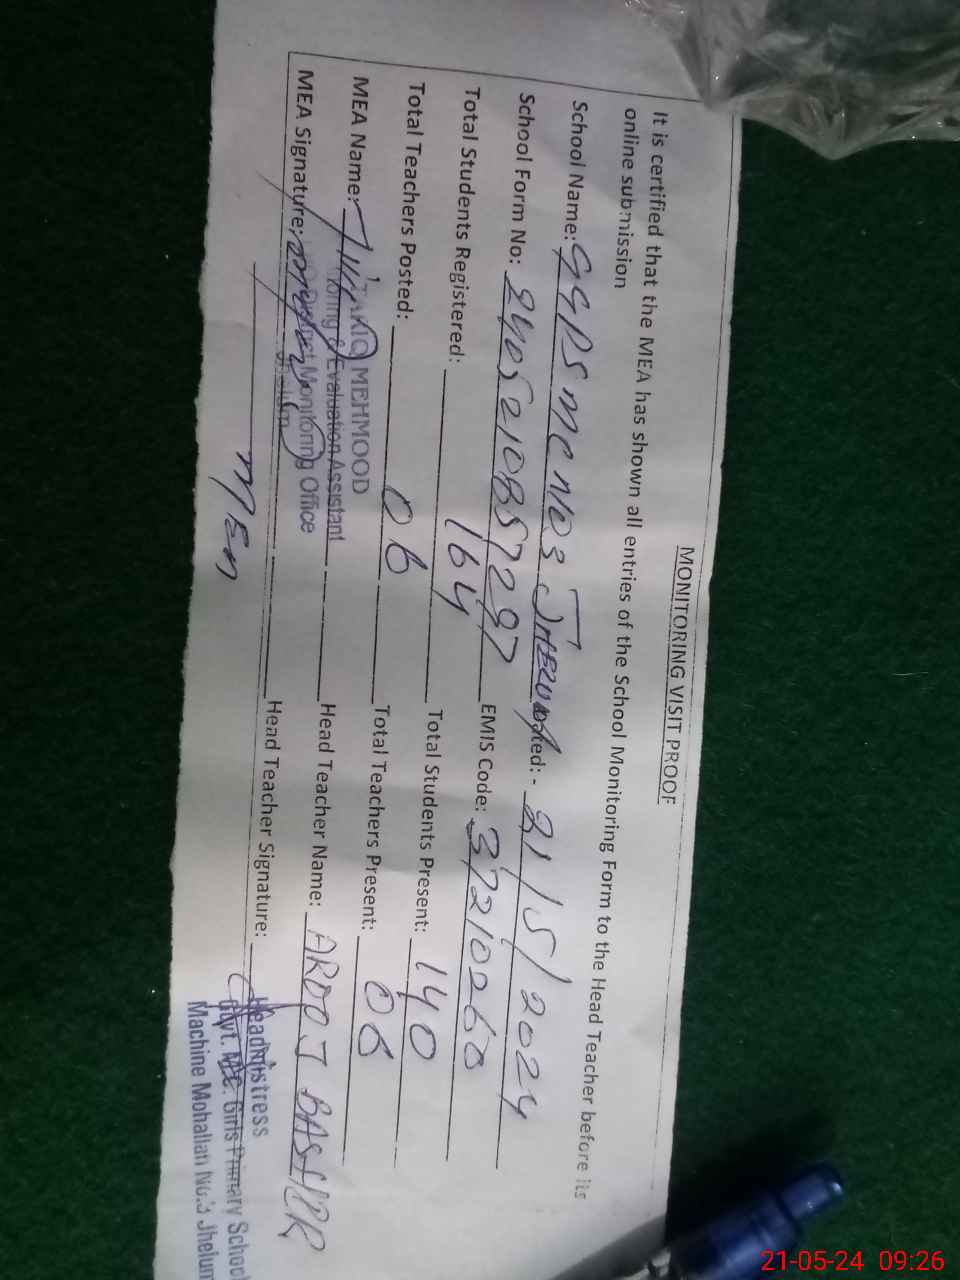 MONITORING VISIT PROOF
It is certified that the MEA has shown all entries of the School Monitoring Form to the Head Teacher before its
online submission
School Name: GGPS MC NO3 JHELUM Dated: - 21/5/2024
School Form No: 2405210857297 EMIS Code: 37210260
Total Students Registered: 164 Total Students Present: 140
Total Teachers Posted: 06 Total Teachers Present: 06
MEA Name: Head Teacher Name: AROOJ BASHIR
MEA Signature: Head Teacher Signature:
TARIQ MEHMOOD
Monitoring & Evaluation Assistant
District Monitoring Office
Jhelum
MEA
Headmistress
Govt. M.C. Girls Primary School
Machine Mohallah No.3 Jhelum
21-05-24 09:26